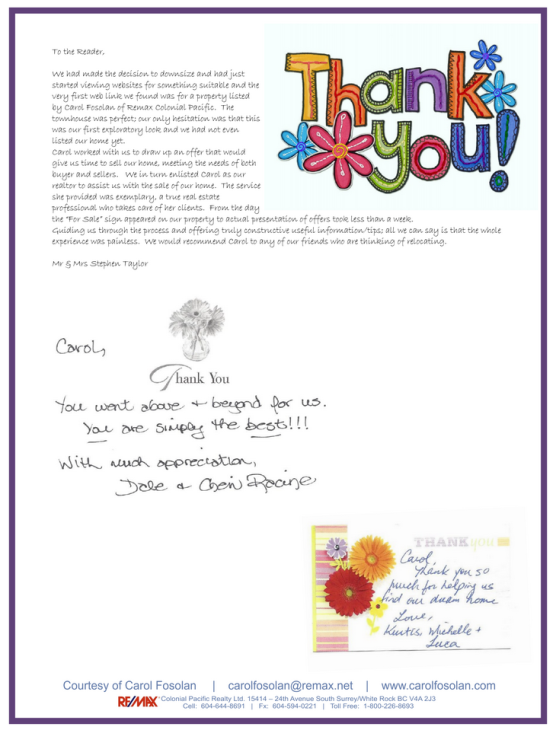 To the Reader,
We had made the decision to downsize and had just
started viewing websites for something suitable and the
very first web link we found was for a property listed
by Carol Fosolan of Remax Colonial Pacific. The
townhouse was perfect; our only hesitation was that this
was our first exploratory look and we had not even
listed our home yet.
Carol worked with us to draw up an offer that would
give us time to sell our home, meeting the needs of both
buyer and sellers. We in turn enlisted Carol as our
realtor to assist us with the sale of our home. The service
she provided was exemplary, a true real estate
professional who takes care of her clients. From the day
the "For Sale" sign appeared on our property to actual presentation of offers took less than a week.
Guiding us through the process and offering truly constructive useful information/tips; all we can say is that the whole
experience was painless. We would recommend Carol to any of our friends who are thinking of relocating.
Mr & Mrs Stephen Taylor
Thank
you!
Carol,
Thank You
You went above + beyond for us.
You are simply the bests!!!
With much appreciation,
Dale &
THANK you
Carol,
Thank you so
much for helping us
find our dream home
Love,
Kurtis, Michelle +
Luca
Courtesy of Carol Fosolan | carolfosolan@remax.net | www.carolfosolan.com
RE/MAX Colonial Pacific Realty Ltd. 15414 – 24th Avenue South Surrey/White Rock BC V4A 2J3
Cell: 604-644-8691 | Fx: 604-594-0221 | Toll Free: 1-800-226-8693